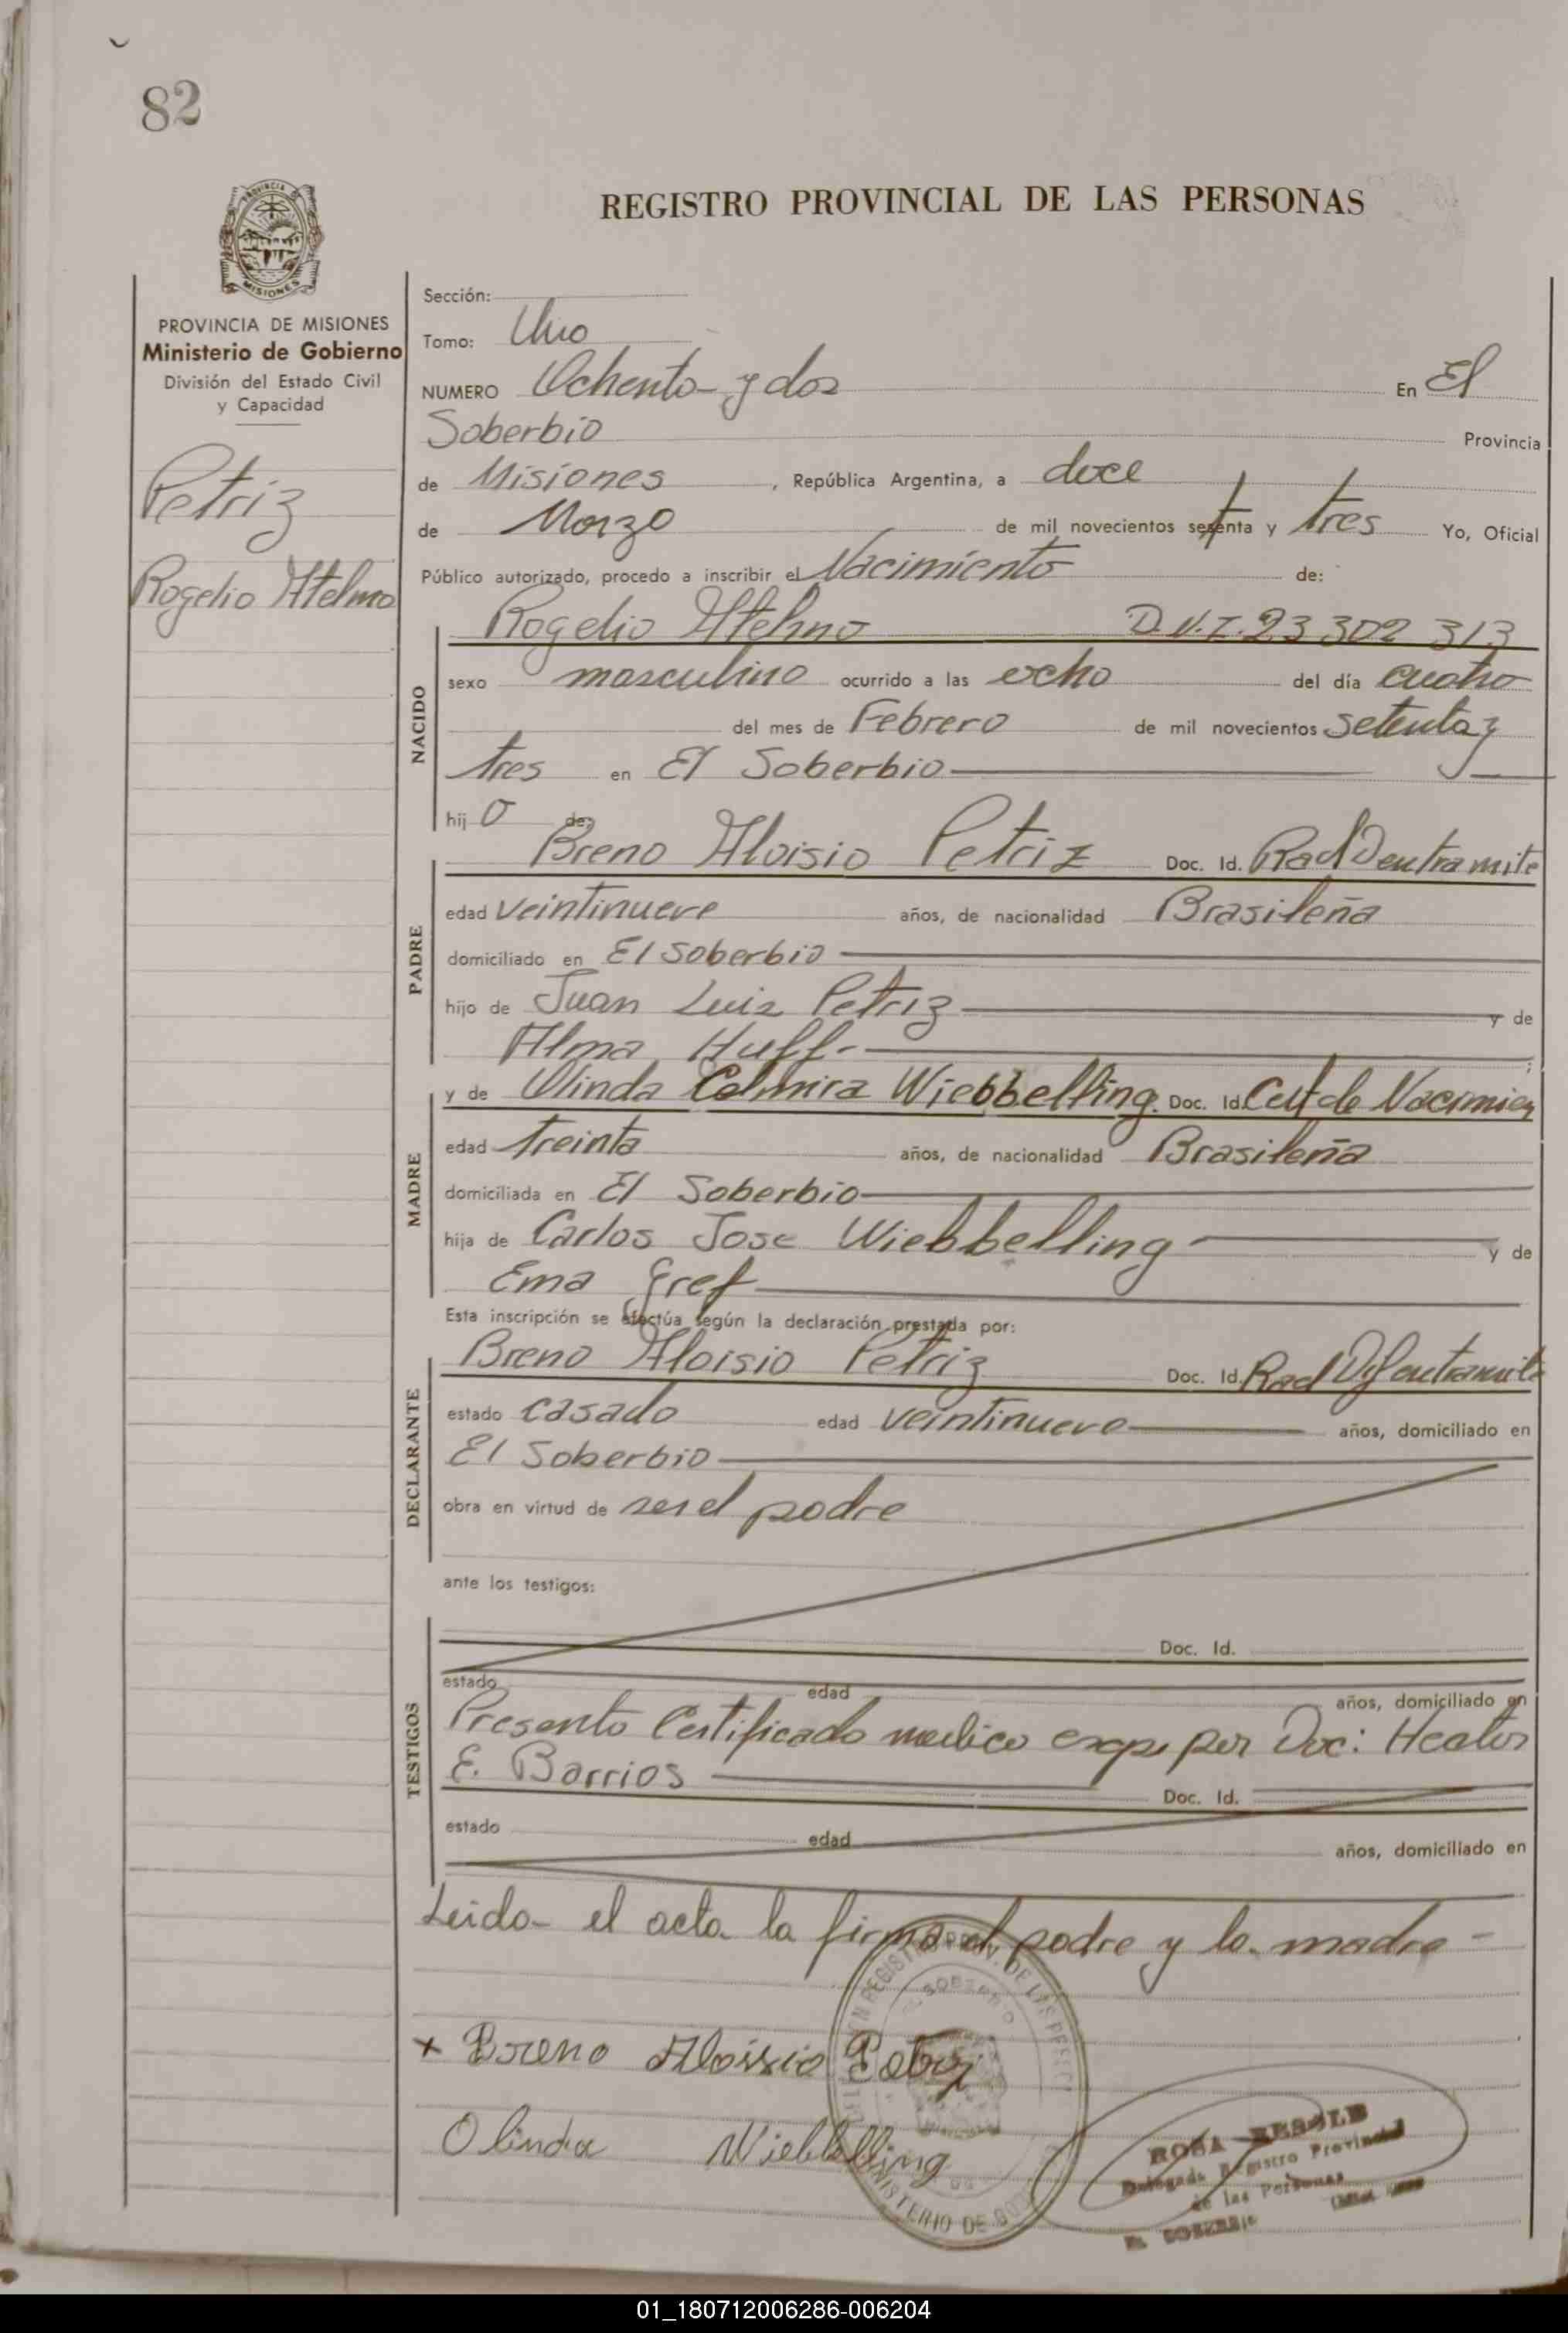 82
REGISTRO PROVINCIAL DE LAS PERSONAS
MISIONES
PROVINCIA DE MISIONES
Ministerio de Gobierno
División del Estado Civil
y Capacidad
Petriz
Rogelio Atelmo
Sección:
Tomo: Uno
NUMERO Ochenta y dos En El
Soberbio Provincia
de Misiones, República Argentina, a doce
de Marzo de mil novecientos setenta y tres Yo, Oficial
Público autorizado, procedo a inscribir el Nacimiento de:
Rogelio Atelmo D.N.I. 23 302 313
NACIDO
sexo masculino ocurrido a las ocho del día cuatro
del mes de Febrero de mil novecientos setenta y
tres en El Soberbio
hij o de:
PADRE
Breno Aloisio Petriz Doc. Id. Rad en tramite
edad veintinueve años, de nacionalidad Brasileña
domiciliado en El Soberbio
hijo de Juan Luiz Petriz y de
Alma Huff.
MADRE
y de Olinda Celmira Wiebbelling Doc. Id. Cert de Nacimien
edad treinta años, de nacionalidad Brasileña
domiciliada en El Soberbio
hija de Carlos Jose Wiebbelling y de
Ema Gref
Esta inscripción se efectúa según la declaración prestada por:
DECLARANTE
Breno Aloisio Petriz Doc. Id. Rad en tramite
estado casado edad veintinueve años, domiciliado en
El Soberbio
obra en virtud de ser el padre
ante los testigos:
TESTIGOS
Doc. Id.
estado edad años, domiciliado en
Presento Certificado medico exp. por Doc: Hector
E. Barrios
Doc. Id.
estado edad años, domiciliado en
Leida el acta la firma el padre y la madre
x Breno Aloissio Petriz
Olinda Wiebbelling
MINISTERIO DE
ROSA
Delegada Registro Provincial
de las Personas
EL SOBERBIO
01_180712006286-006204